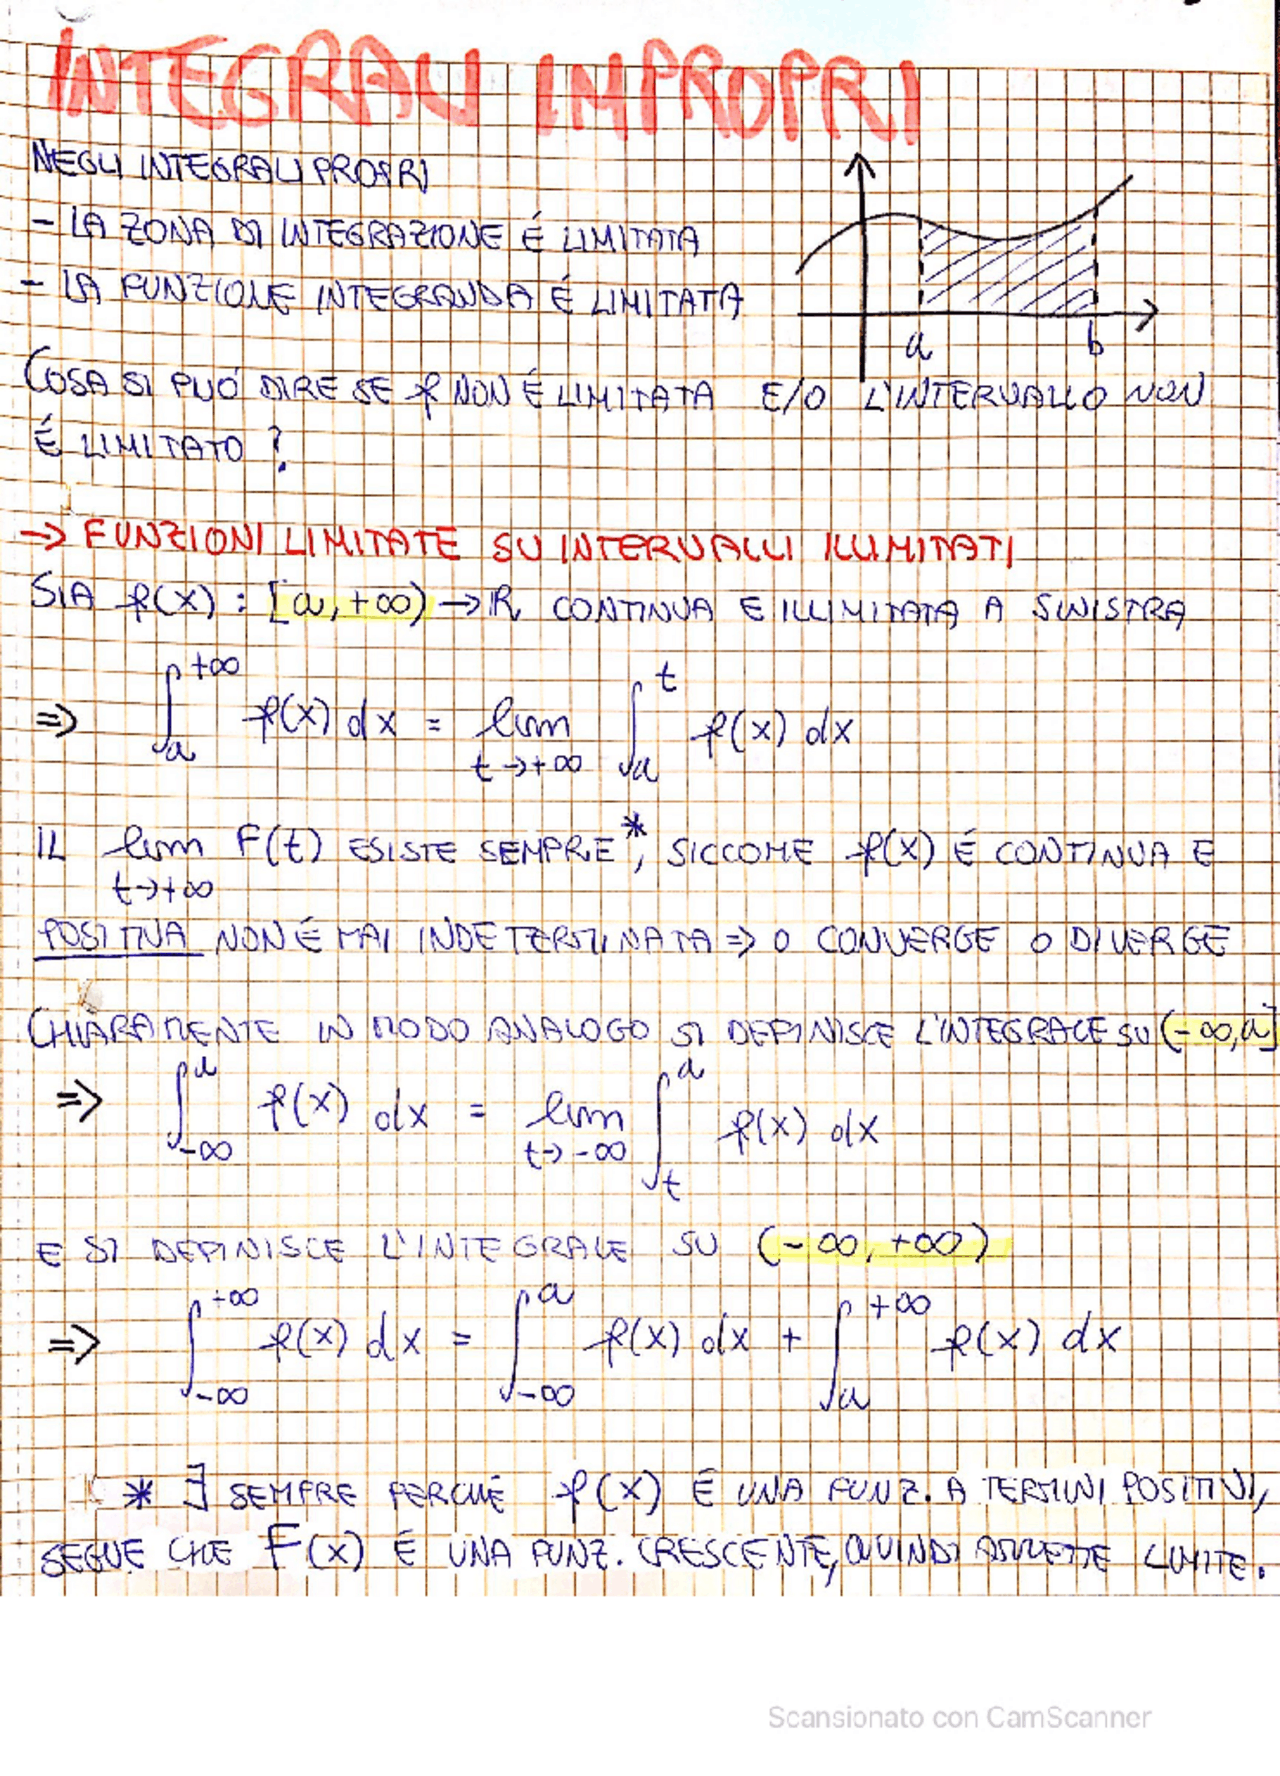 INTEGRALI IMPROPRI
NEGLI INTEGRALI PROPRI
- LA ZONA DI INTEGRAZIONE É LIMITATA
- LA FUNZIONE INTEGRANDA É LIMITATA
a b
COSA SI PUÓ DIRE SE f NON É LIMITATA E/O L'INTERVALLO NON
É LIMITATO ?
→ FUNZIONI LIMITATE SU INTERVALLI ILLIMITATI
SIA f(x) : [a, +∞) → R CONTINUA E ILLIMITATA A SINISTRA
⇒ ∫_a^{+∞} f(x) dx = lim_{t→+∞} ∫_a^t f(x) dx
IL lim_{t→+∞} F(t) ESISTE SEMPRE*, SICCOME f(x) É CONTINUA E
POSITIVA NON É MAI INDETERMINATA ⇒ O CONVERGE O DIVERGE
CHIARAMENTE IN MODO ANALOGO SI DEFINISCE L'INTEGRALE SU (-∞, a]
⇒ ∫_{-∞}^a f(x) dx = lim_{t→-∞} ∫_t^a f(x) dx
E SI DEFINISCE L'INTEGRALE SU (-∞, +∞)
⇒ ∫_{-∞}^{+∞} f(x) dx = ∫_{-∞}^a f(x) dx + ∫_a^{+∞} f(x) dx
* ∃ SEMPRE PERCHÉ f(x) É UNA FUNZ. A TERMINI POSITIVI,
SEGUE CHE F(x) É UNA FUNZ. CRESCENTE, QUINDI AMMETTE LIMITE.
Scansionato con CamScanner